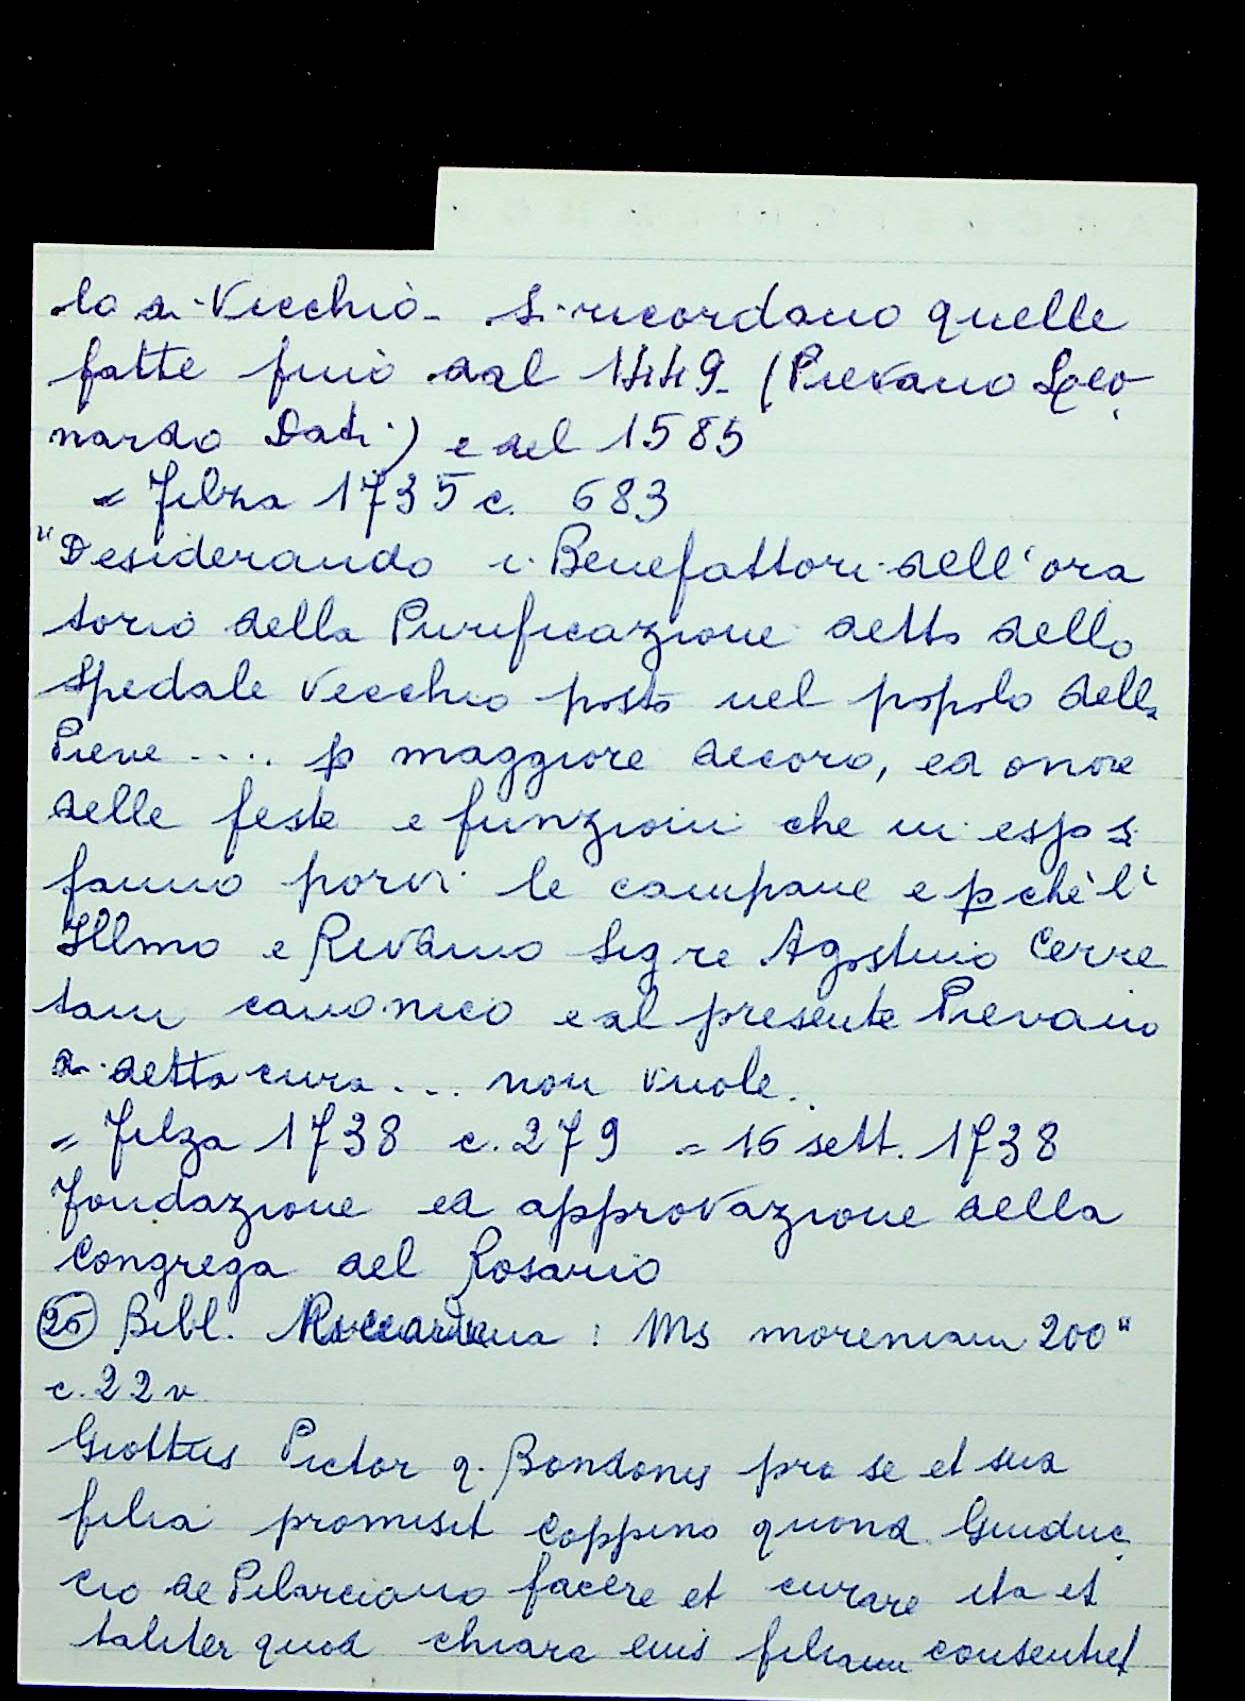 lo a Vicchio - Si ricordano quelle
fatte fino dal 1449 - (Pievano Leo
nardo Dati) e del 1585
= Filza 1735 c. 683
"Desiderando i Benefattori dell'ora
torio della Purificazione detto dello
Spedale vecchio posto nel popolo della
Pieve .... p maggiore decoro, ed onore
delle feste e funzioni che in esso si
fanno porvi le campane e pchè l'
Illmo e Revdmo Sigre Agostino Cerre
tani canonico e al presente Pievano
a detta cura ... non vuole.
= Filza 1738 c. 279 = 16 sett. 1738
Fondazione ed approvazione della
Congrega del Rosario
26 Bibl. Riccardiana : Ms moreniani 200"
c. 22 v
Giottus Pictor q. Bondonis pro se et sua
filia promisit Coppino quond. Guiduc
cio de Pilarciano facere et curare ita et
taliter quod chiara eius filiam consentiet